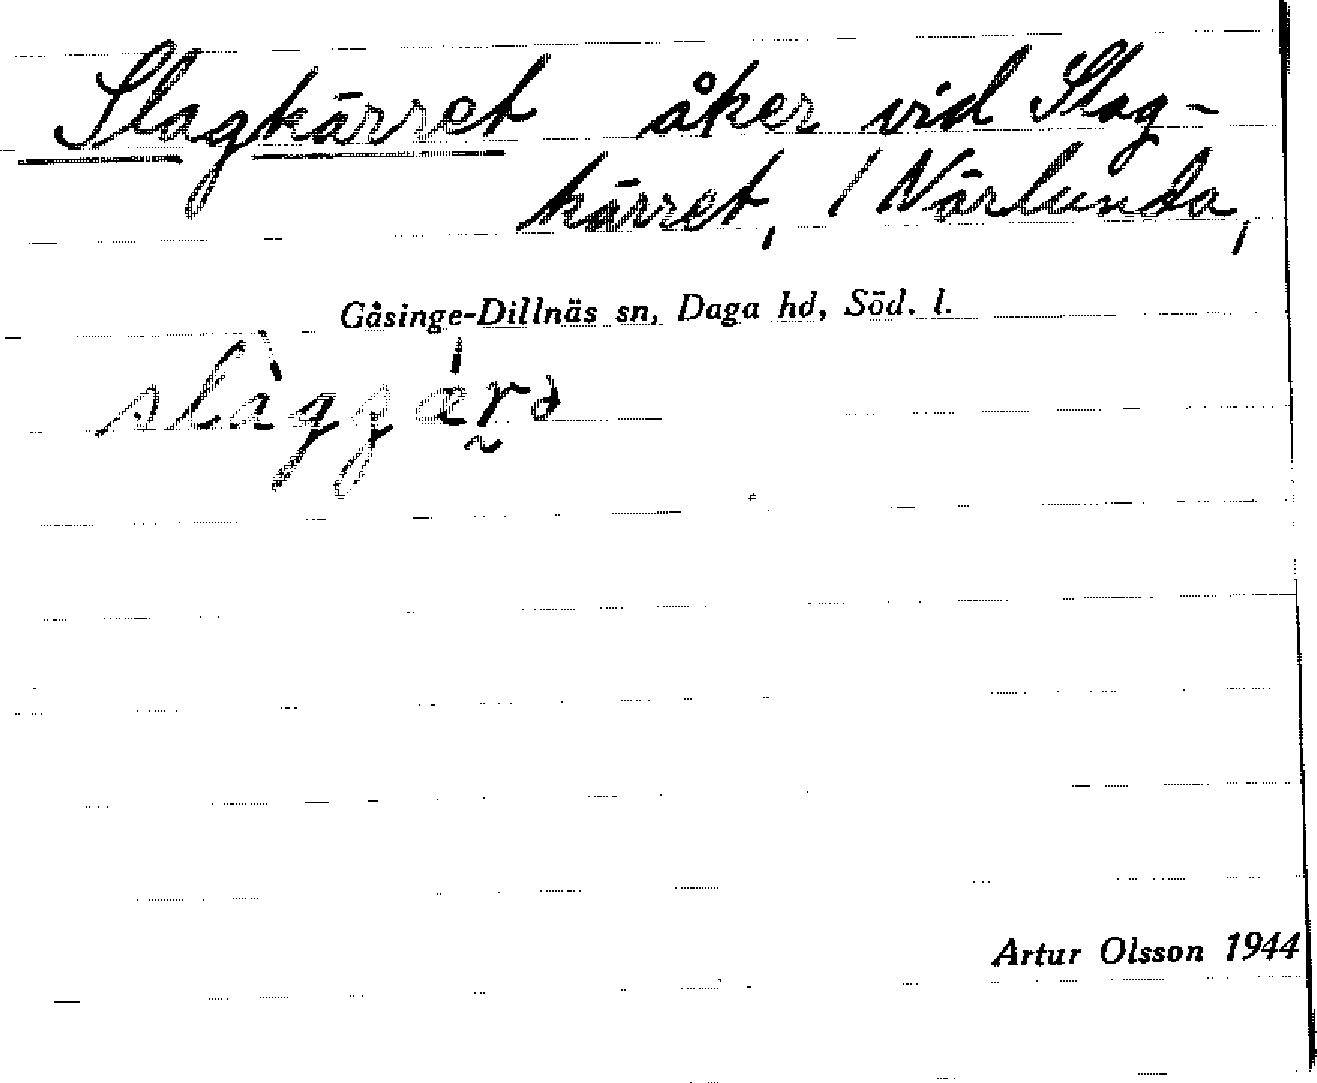 Slagkärret åker vid Slag-
kärret, / Närlunda,
Gåsinge-Dillnäs sn, Daga hd, Söd. l.
Artur Olsson 1944